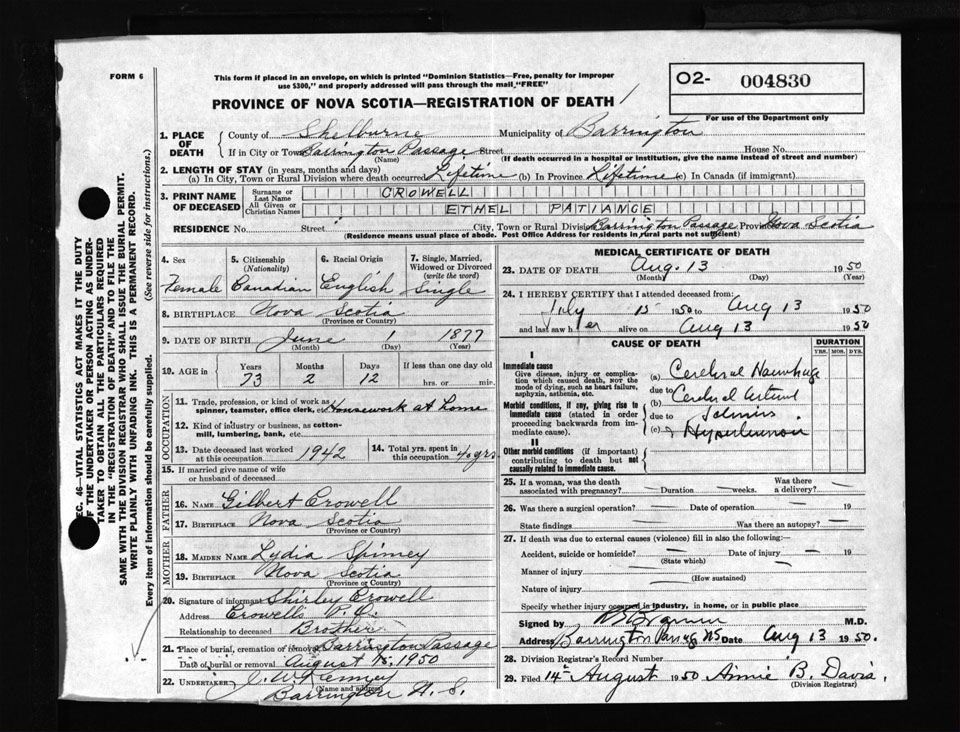 FORM 6
This form if placed in an envelope, on which is printed "Dominion Statistics—Free, penalty for improper
use $300," and properly addressed will pass through the mail "FREE"
O2- 004830
For use of the Department only
PROVINCE OF NOVA SCOTIA—REGISTRATION OF DEATH
1. PLACE OF DEATH
County of Shelburne Municipality of Barrington
If in City or Town Barrington Passage Street House No.
(Name) (If death occurred in a hospital or institution, give the name instead of street and number)
2. LENGTH OF STAY (in years, months and days)
(a) In City, Town or Rural Division where death occurred Lifetime (b) In Province Lifetime (c) In Canada (if immigrant)
3. PRINT NAME OF DECEASED
Surname or Last Name CROWELL
All Given or Christian Names ETHEL PATIANCE
RESIDENCE No. Street City, Town or Rural Division Barrington Passage Province Nova Scotia
(Residence means usual place of abode. Post Office Address for residents in rural parts not sufficient)
4. Sex 5. Citizenship (Nationality) 6. Racial Origin 7. Single, Married, Widowed or Divorced (write the word)
Female Canadian English Single
8. BIRTHPLACE Nova Scotia
(Province or Country)
9. DATE OF BIRTH June 1 1877
(Month) (Day) (Year)
10. AGE in Years Months Days If less than one day old
73 2 12 hrs. or min.
OCCUPATION
11. Trade, profession, or kind of work as
spinner, teamster, office clerk, etc. Housework at home
12. Kind of industry or business, as cotton-
mill, lumbering, bank, etc.
13. Date deceased last worked
at this occupation 1942
14. Total yrs. spent in
this occupation 40 yrs
15. If married give name of wife
or husband of deceased
FATHER
16. Name Gilbert Crowell
17. Birthplace Nova Scotia
MOTHER
18. Maiden Name Lydia Spinney
19. Birthplace Nova Scotia
(Province or Country)
20. Signature of informant Shirley Crowell
Address Crowells P.O.
Relationship to deceased Brother
21. Place of burial, cremation or removal Barrington Passage
Date of burial or removal August 15, 1950
22. Undertaker J. W. Kenney
(Name and address)
Barrington N. S.
MEDICAL CERTIFICATE OF DEATH
23. DATE OF DEATH Aug. 13 1950
(Month) (Day) (Year)
24. I HEREBY CERTIFY that I attended deceased from:
July 15 1950 to Aug 13 1950
and last saw her alive on Aug 13 1950
CAUSE OF DEATH
DURATION
YRS. MOS. DYS.
I
Immediate cause
Give disease, injury or complica-
tion which caused death, NOT the
mode of dying, such as heart failure,
asphyxia, asthenia, etc.
(a) Cerebral
due to
Morbid conditions, if any, giving rise to
immediate cause (stated in order
proceeding backwards from im-
mediate cause).
(b) Cerebral
due to
(c)
II
Other morbid conditions (if important)
contributing to death but not
causally related to immediate cause.
25. If a woman, was the death Was there
associated with pregnancy? — Duration — weeks. a delivery? —
26. Was there a surgical operation? — Date of operation — 19
State findings — Was there an autopsy? —
27. If death was due to external causes (violence) fill in also the following:
Accident, suicide or homicide? — Date of injury — 19
(State which)
Manner of injury —
(How sustained)
Nature of injury —
Specify whether injury occurred in industry, in home, or in public place
Signed by M.D.
Address Barrington Passage NS Date Aug 13 1950.
28. Division Registrar's Record Number
29. Filed 14th August 1950 Annie B. Davis.
(Division Registrar)
SEC. 46—VITAL STATISTICS ACT MAKES IT THE DUTY
OF THE UNDERTAKER OR PERSON ACTING AS UNDER-
TAKER TO OBTAIN ALL THE PARTICULARS REQUIRED
IN THE "REGISTRATION OF DEATH" AND TO FILE THE
SAME WITH THE DIVISION REGISTRAR WHO SHALL ISSUE THE BURIAL PERMIT.
WRITE PLAINLY WITH UNFADING INK. THIS IS A PERMANENT RECORD.
Every item of information should be carefully supplied. (See reverse side for instructions.)